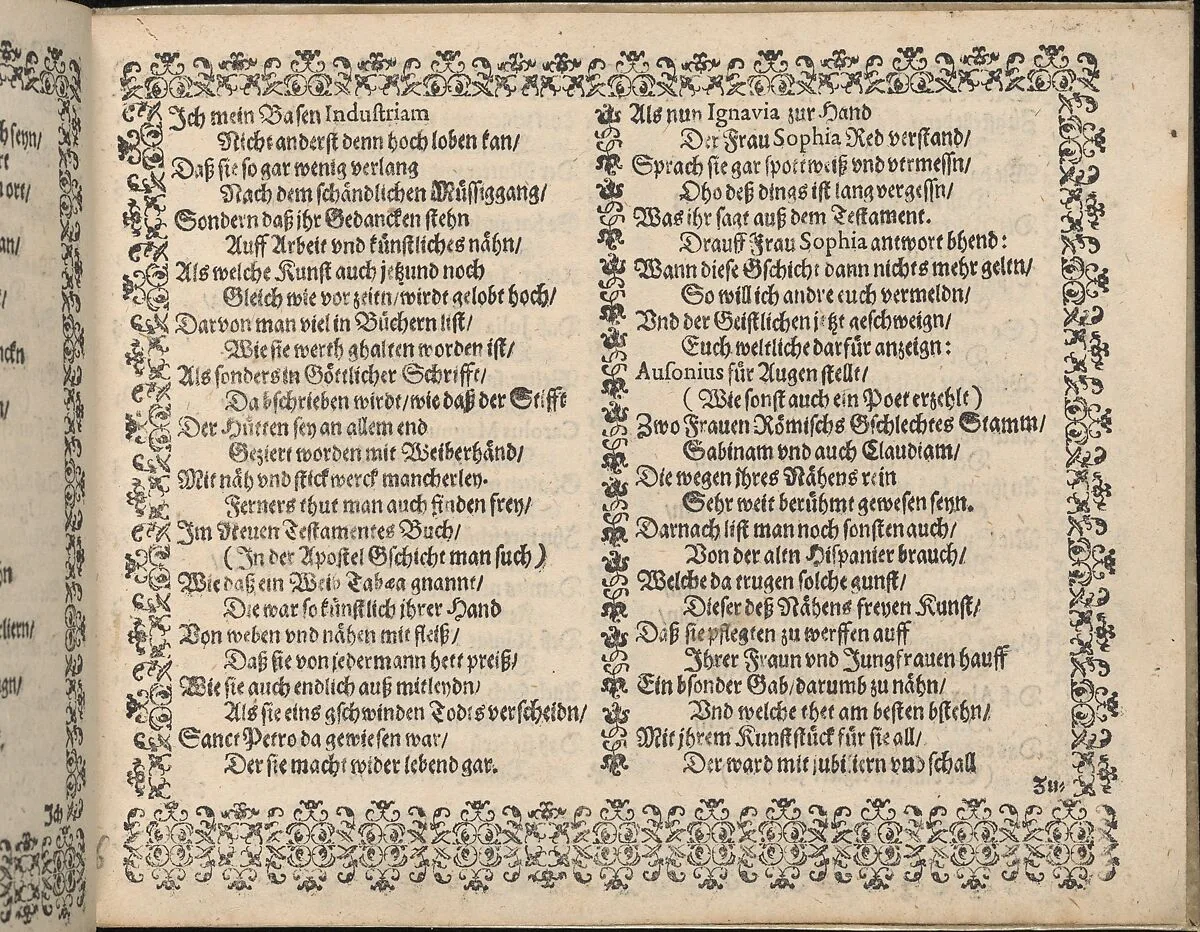 Ich mein Basen Industriam
Nicht anderst denn hoch loben kan/
Daß sie so gar wenig verlang
Nach dem schändlichen Müssiggang/
Sondern daß ihr Gedancken stehn
Auff Arbeit vnd künstliches nähn/
Als welche Kunst auch jetzund noch
Gleich wie vor zeitn/wirdt gelobt hoch/
Darvon man viel in Büchern list/
Wie sie werth ghalten worden ist/
Als sonders in Göttlicher Schrifft/
Da bschrieben wirdt/wie daß der Stifft
Der Hütten sey an allem end
Geziert worden mit Weiberhänd/
Mit näh vnd stickwerck mancherley.
Ferners thut man auch finden frey/
Im Neuen Testamentes Buch/
(In der Apostel Gschicht man such)
Wie daß ein Weib Tabæa gnannt/
Die war so künstlich jhrer Hand
Von weben vnd nähen mit fleiß/
Daß sie von jedermann hett preiß/
Wie sie auch endlich auß mitleydn/
Als sie eins gschwinden Todts verscheidn/
Sanct Petro da gewiesen war/
Der sie macht wider lebend gar.
Als nun Ignavia zur Hand
Der Frau Sophia Red verstand/
Sprach sie gar spottweiß vnd vermessn/
Oho deß dings ist lang vergessn/
Was ihr sagt auß dem Testament.
Drauff Frau Sophia antwort bhend:
Wann diese Gschicht dann nichts mehr geltn/
So will ich andre euch vermeldn/
Vnd der Geistlichen jetzt geschweign/
Euch weltliche darfür anzeign:
Ausonius für Augen stellt/
(Wie sonst auch ein Poet erzehlt)
Zwo Frauen Römischs Gschlechtes Stamm/
Sabinam vnd auch Claudiam/
Die wegen jhres Nähens rein
Sehr weit berühmt gewesen seyn.
Darnach list man noch sonsten auch/
Von der altn Hispanier brauch/
Welche da trugen solche gunst/
Dieser deß Nähens freyen Kunst/
Daß sie pflegten zu werffen auff
Ihrer Fraun vnd Jungfrauen hauff
Ein bsonder Gab/darumb zu nähn/
Vnd welche thet am besten bstehn/
Mit jhrem Kunststück für sie all/
Der ward mit jubiliern vnd schall
Zu-
Ich